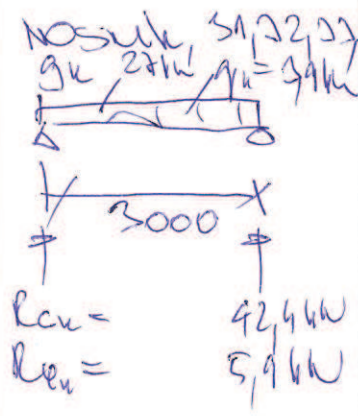 Nosník 31,32,33
gk 27kN qk = 3,9kN
3000
RGk = 42,4kN
RQk = 5,9kN